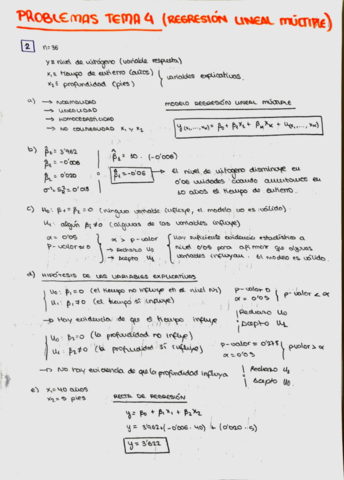 PROBLEMAS TEMA 4 (REGRESIÓN LINEAL MÚLTIPLE)
2 n=36
y = nivel de nitrógeno (variable respuesta)
x₁ = tiempo de entierro (años)
x₂ = profundidad (pies)
variables explicativas.
a) → NORMALIDAD
→ LINEALIDAD
→ HOMOCEDASTICIDAD
→ NO COLINEALIDAD x₁ y x₂
MODELO REGRESIÓN LINEAL MÚLTIPLE
b) β̂₀ = 3'962
β̂₁ = -0'006
β̂₂ = 0'020
β̂₁ = 10 · (-0'006)
β̂₁ = -0'06 → El nivel de nitrógeno disminuye en
0'06 unidades cuando aumentamos en
10 años el tiempo de entierro.
c) H₀: β₁ = β₂ = 0 (ninguna variable influye, el modelo no es válido)
H₁: algún βⱼ ≠ 0 (algunas de las variables influye)
α = 0'05
p-valor = 0
α > p-valor
→ Rechazo H₀
→ Acepto H₁
Hay suficiente evidencia estadística a
nivel 0'05 para afirmar que algunas
variables influyen. El modelo es válido.
d) HIPÓTESIS DE LAS VARIABLES EXPLICATIVAS
H₀: β₁ = 0 (el tiempo no influye en el nivel N)
H₁: β₁ ≠ 0 (el tiempo sí influye)
p-valor = 0
α = 0'05
p-valor < α
Rechazo H₀
Acepto H₁
→ Hay evidencia de que el tiempo influye
H₀: β₂ = 0 (la profundidad no influye)
H₁: β₂ ≠ 0 (la profundidad sí influye)
α = 0'05
p-valor > α
Rechazo H₁
Acepto H₀
→ No hay evidencia de que la profundidad influya
e) x₁ = 40 años
x₂ = 5 pies
RECTA DE REGRESIÓN
y = β₀ + β₁x₁ + β₂x₂
y = 3'962 + (-0'006 · 40) + (0'020 · 5)
y = 3'822